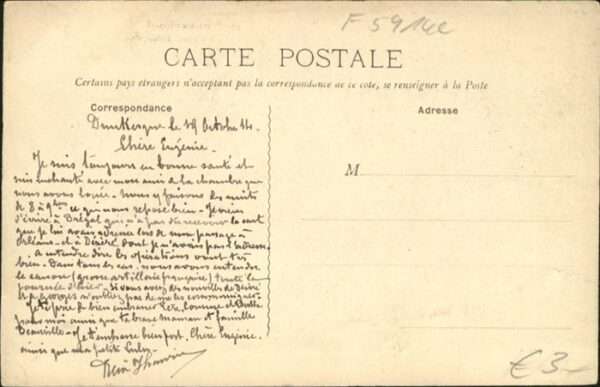 F 5914
CARTE POSTALE
Certains pays étrangers n'acceptent pas la correspondance de ce côté, se renseigner à la Poste
Correspondance
Adresse
Dunkerque le 19 Octobre 14.
Chère Eugénie.
Je suis toujours en bonne santé et
suis enchanté avec mon ami de la chambre que
nous avons louée. Nous y faisons des nuits
de 8 à 9 h ce qui nous repose bien. Je viens
d'écrire à qui n'a pas du recevoir la carte
que je lui avais adressée lors de mon passage à
Orléans. et à Désiré dont je n'avais pas l'adresse.
A entendre dire les opérations vont très
bien. Dans tous les cas, nous avons entendu
le canon (grosse artillerie française) toute la
journée d'hier. Si vous avez des nouvelles de Désiré
et Georges n'oubliez pas de me les communiquer.
Je te prie de bien embrasser
pour moi ainsi que ta brave maman et famille
Je t'embrasse bien fort, Chère Eugénie.
ainsi que ma petite
M
€ 3-